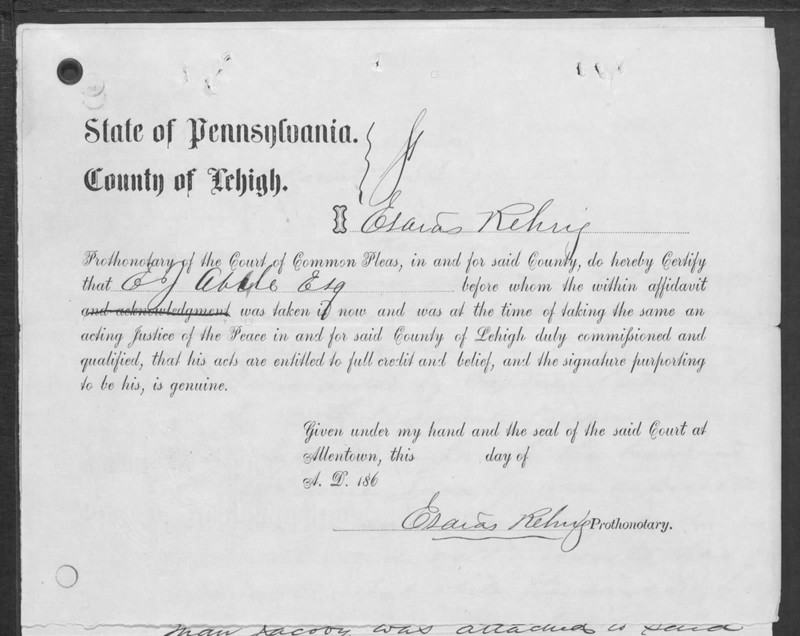 State of Pennsylvania.
County of Lehigh.
I Esaias Rehrig
Prothonotary of the Court of Common Pleas, in and for said County, do hereby Certify
that E J Abele Esq before whom the within affidavit
and acknowledgment was taken is now and was at the time of taking the same an
acting Justice of the Peace in and for said County of Lehigh duly commissioned and
qualified, that his acts are entitled to full credit and belief, and the signature purporting
to be his, is genuine.
Given under my hand and the seal of the said Court at
Allentown, this day of
A. D. 186
Esaias Rehrig Prothonotary.
man Jacoby was attached to said